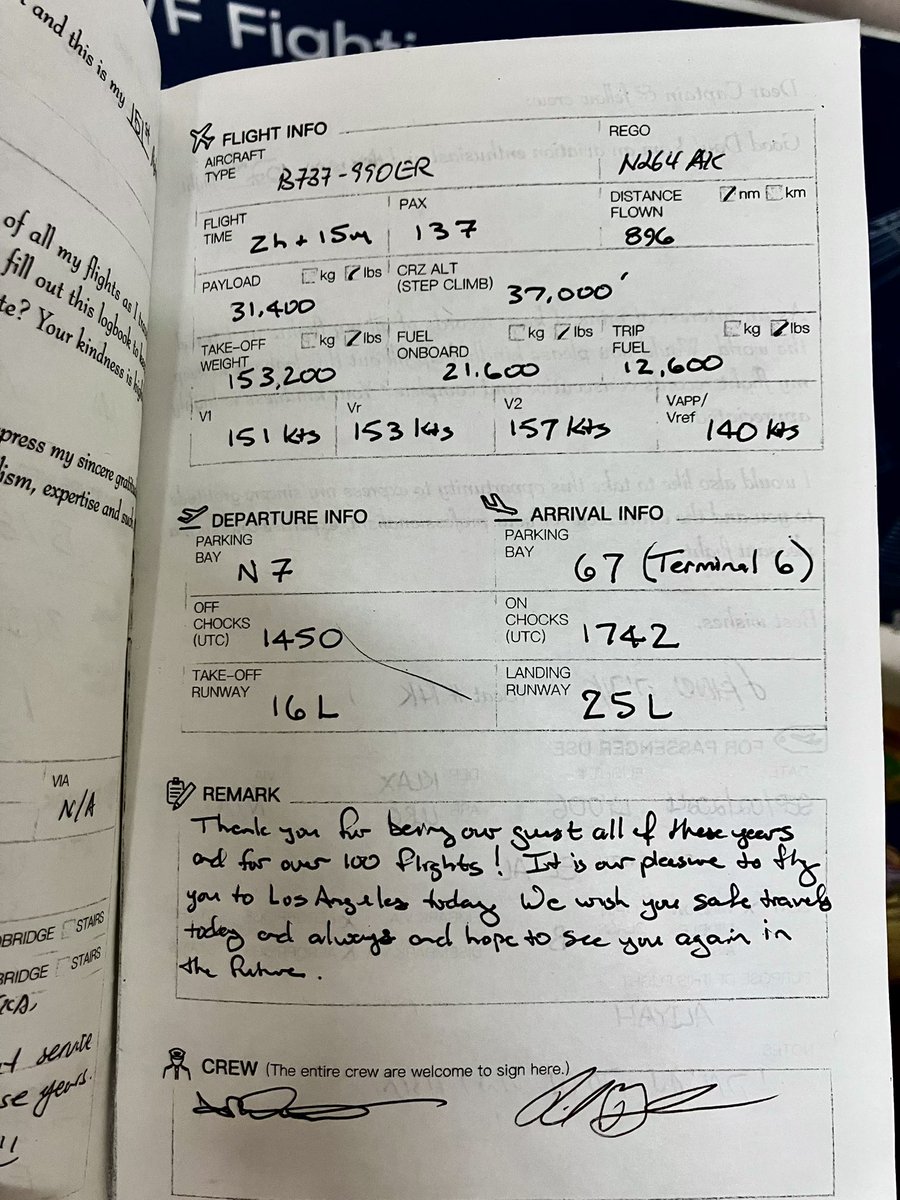 VF Fighti
t and this is my 161st
of all my flights as I
fill out this logbook to
te? Your kindness is
press my sincere
ism, expertise and
VIA
N/A
OBRIDGE STAIRS
BRIDGE STAIRS
service
se years.
!!
FLIGHT INFO
AIRCRAFT TYPE B737-990ER
REGO N264AK
FLIGHT TIME 2h + 15m
PAX 137
DISTANCE FLOWN nm km
896
PAYLOAD kg lbs
31,400
CRZ ALT (STEP CLIMB) 37,000'
TAKE-OFF WEIGHT kg lbs
153,200
FUEL ONBOARD kg lbs
21,600
TRIP FUEL kg lbs
12,600
V1 151 kts
Vr 153 kts
V2 157 kts
VAPP/Vref 140 kts
DEPARTURE INFO
PARKING BAY N7
OFF CHOCKS (UTC) 1450
TAKE-OFF RUNWAY 16L
ARRIVAL INFO
PARKING BAY 67 (Terminal 6)
ON CHOCKS (UTC) 1742
LANDING RUNWAY 25L
REMARK
Thank you for being our guest all of these years
and for over 100 flights! It is our pleasure to fly
you to Los Angeles today. We wish you safe travels
today and always and hope to see you again in
the future.
CREW (The entire crew are welcome to sign here.)